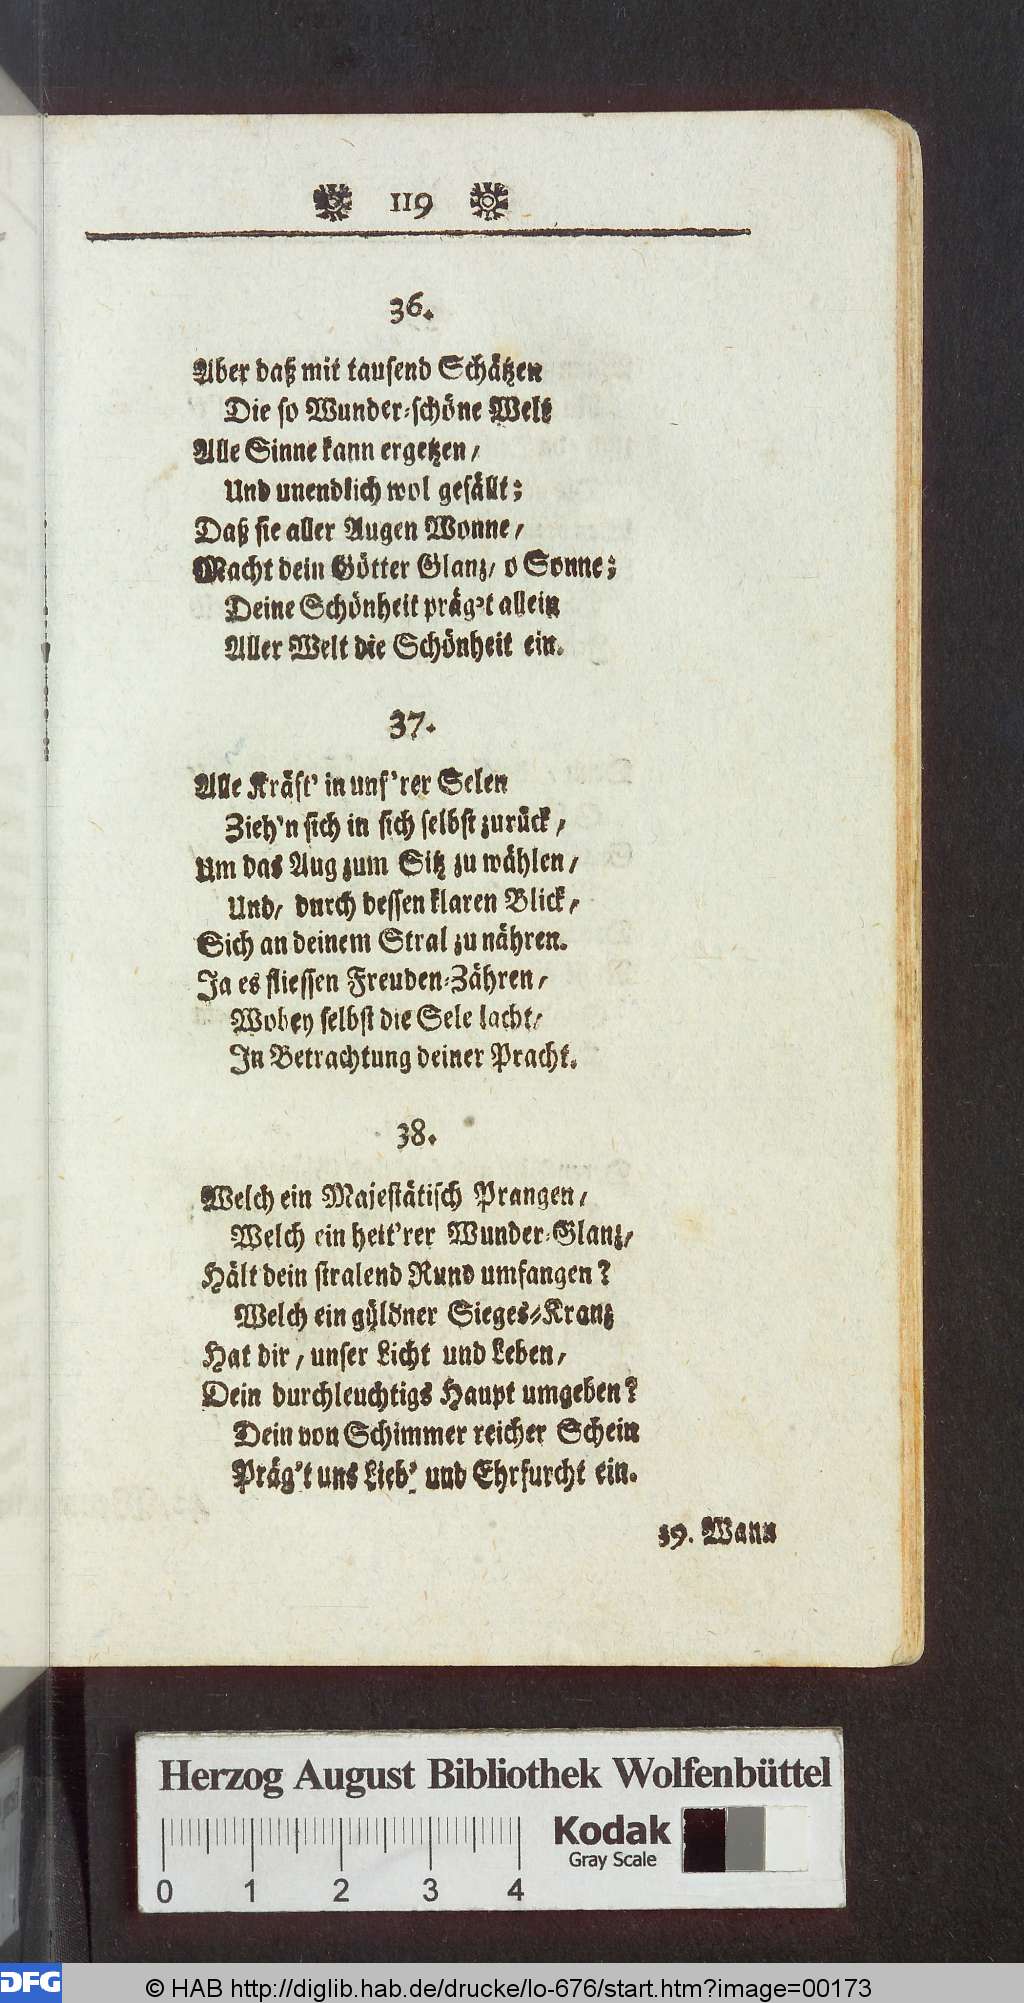 119
36.
Aber daß mit tausend Schätzen
Die so Wunder-schöne Welt
Alle Sinne kann ergetzen/
Und unendlich wol gefällt;
Daß sie aller Augen Wonne/
Macht dein Götter Glanz/ o Sonne;
Deine Schönheit präg't allein
Aller Welt die Schönheit ein.
37.
Alle Kräft' in uns'rer Selen
Zieh'n sich in sich selbst zurück/
Um das Aug zum Sitz zu wählen/
Und/ durch dessen klaren Blick/
Sich an deinem Stral zu nähren.
Ja es fliessen Freuden-Zähren/
Wobey selbst die Sele lacht/
In Betrachtung deiner Pracht.
38.
Welch ein Majestätisch Prangen/
Welch ein heit'rer Wunder-Glanz/
Hält dein stralend Rund umfangen?
Welch ein güldner Sieges-Kranz
Hat dir/ unser Licht und Leben/
Dein durchleuchtigs Haupt umgeben?
Dein von Schimmer reicher Schein
Präg't uns Lieb' und Ehrfurcht ein.
39. Wann
Herzog August Bibliothek Wolfenbüttel
Kodak
Gray Scale
0 1 2 3 4
DFG © HAB http://diglib.hab.de/drucke/lo-676/start.htm?image=00173